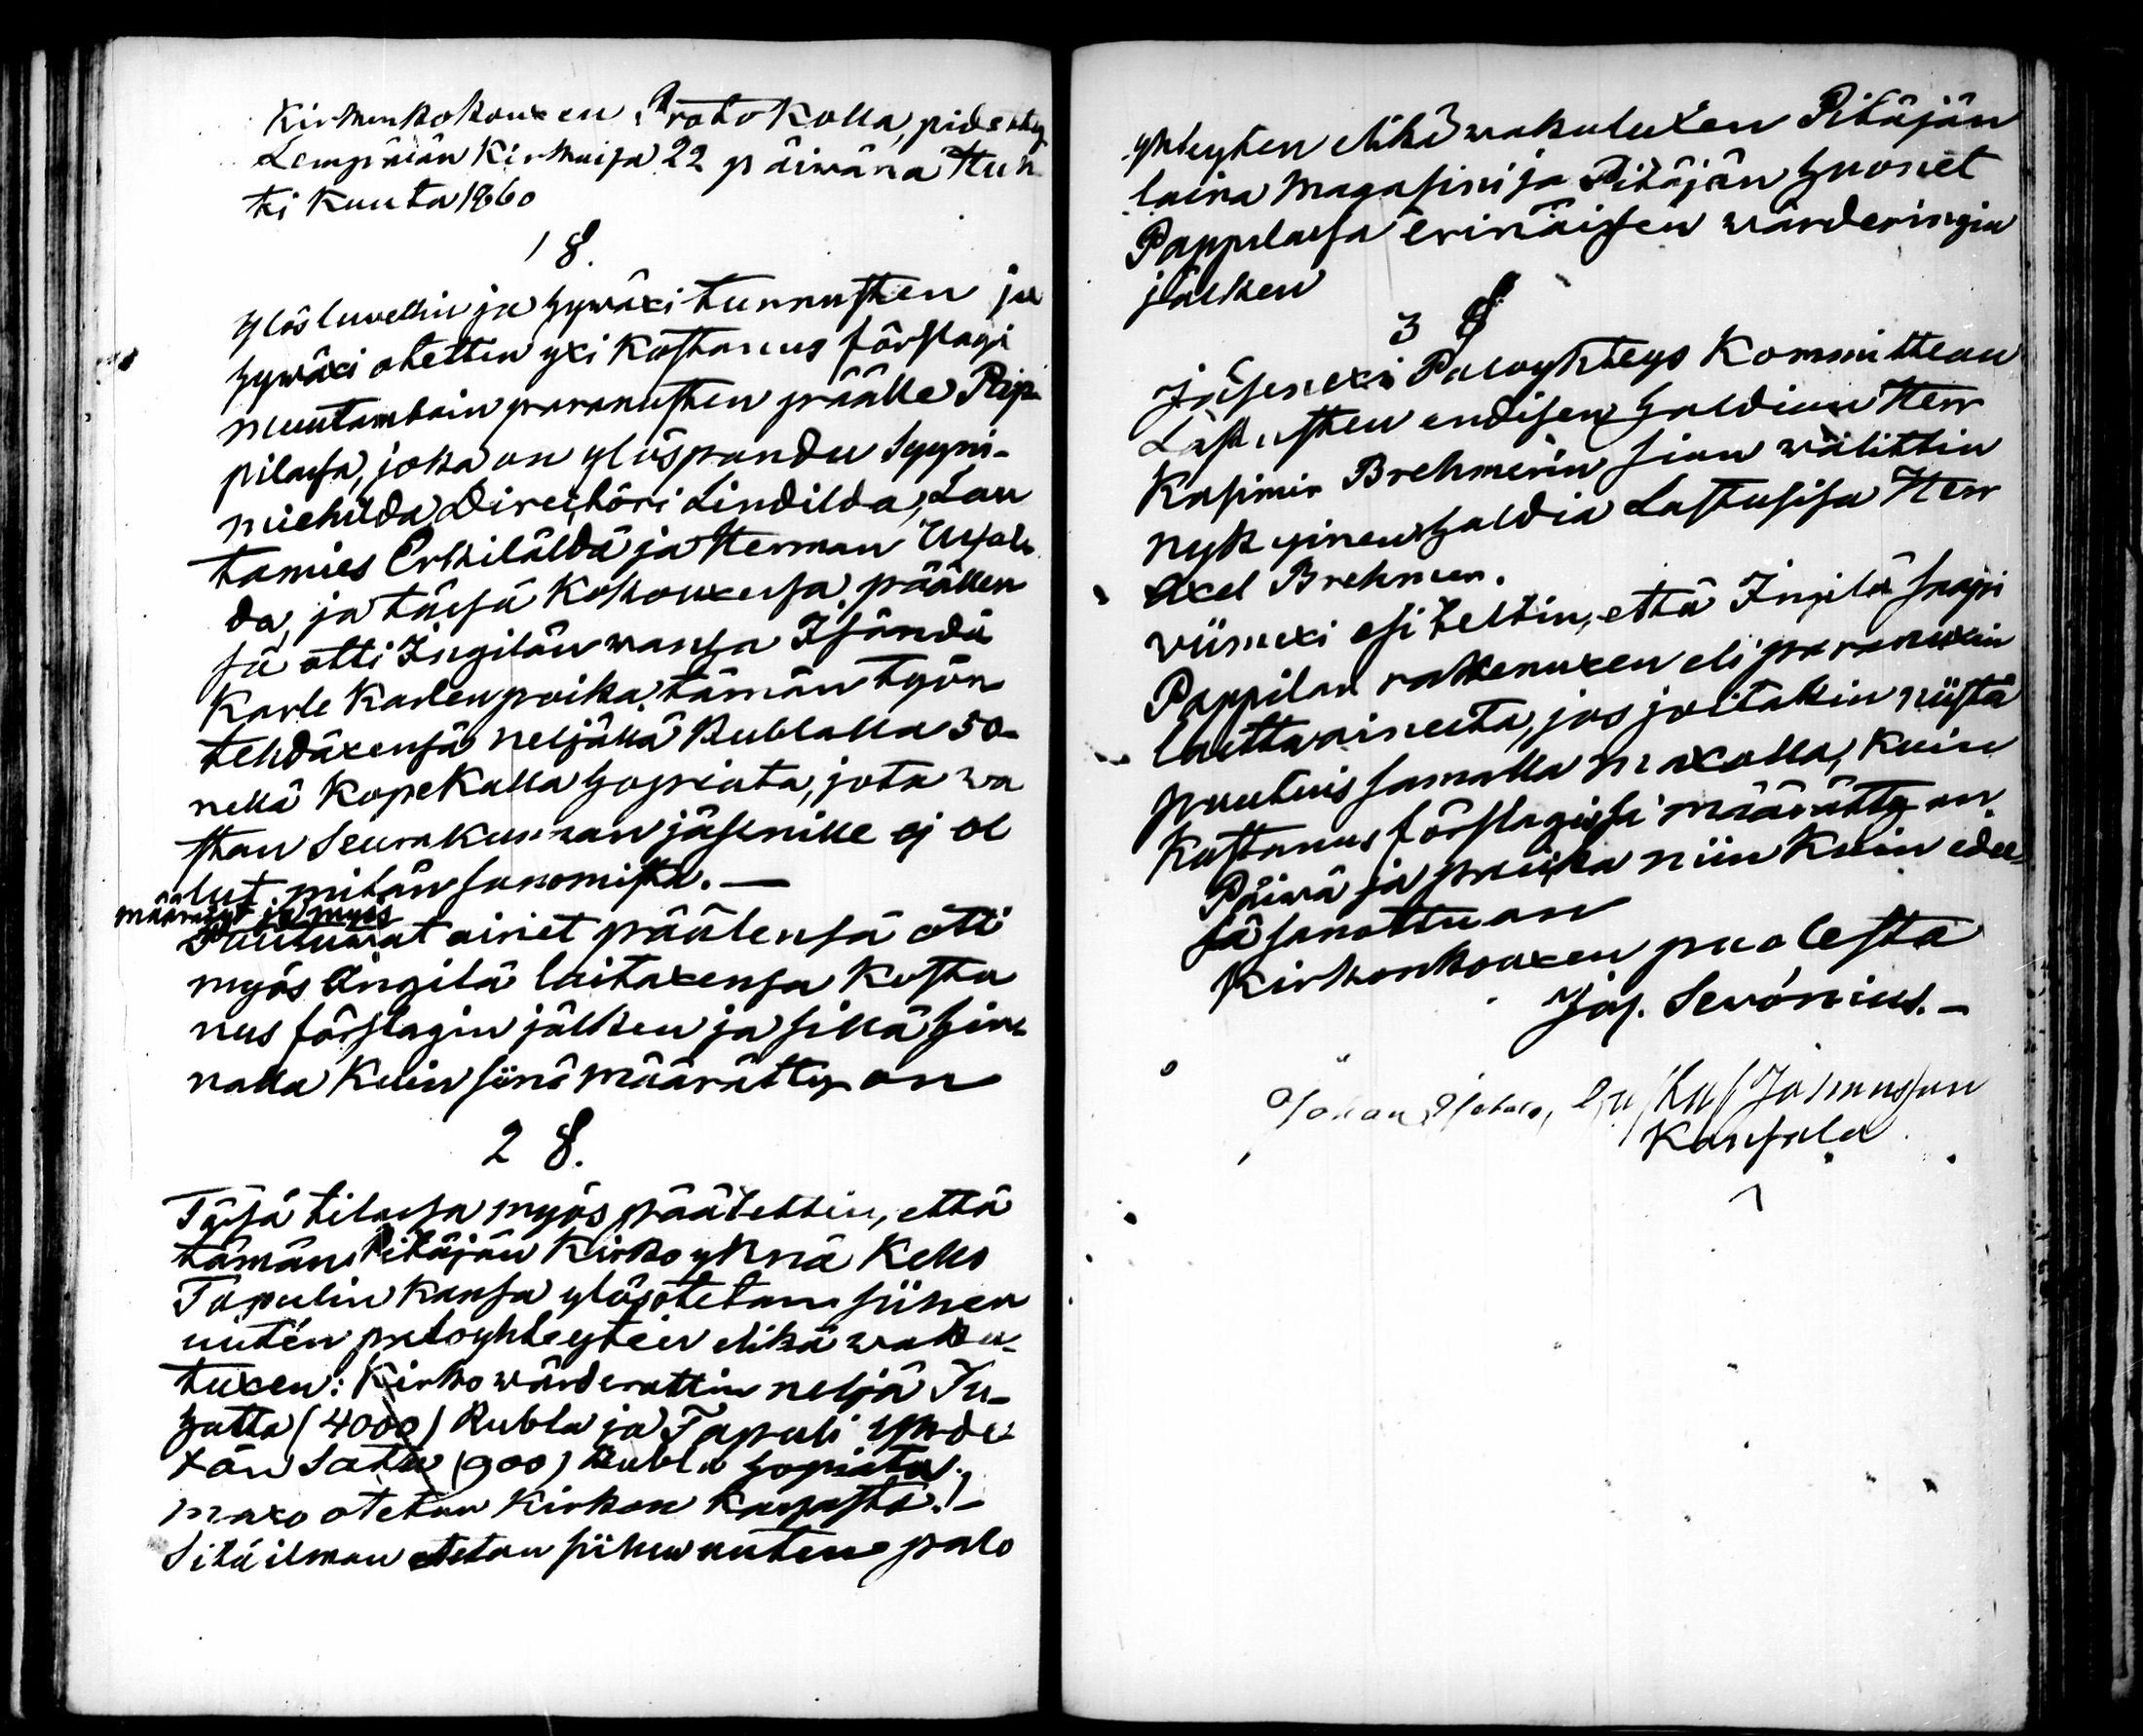 Kirkonkokouxen Protokolla, pidetty
Lempäälän Kirkoisa 22 päiwänä Huh
ti Kuuta 1860
1 §.
Ylösluvettin ja hywäxi tunnustten ja
hywäxi otettin yxi Kostanus förslagi
muutambain parannusten päälle Pap
pilassa, joka on ylöspandu Syyni-
miehildä Direchtöri Lindilda, Lau
tamies Erkkiläldä ja Herman Uusal
da, ja täsä Kokouxessa päällen
sä otti Ingilän wanha Isändä
Karle Karlenpoika, tämän työn
tehdäxensä neljällä Rublalla 50-
nellä Kopekalla hopiata, jota wa
stan Seurakunnan jäsenille ej ol
lut mitän sanomista. —
määrätyt ja myös
Puutuwat ainet päälensä otti
myös Ingilä laitaxensa Kosta
nus förslagin jälken ja sillä hin
nalla Kuin siinä määrätty on
2 §.
Täsä tilassa myös päätettin, että
tämän Pitäjän Kirko ynnä Kello
Tapulin kansa ylösotetan siihen
uuten paloyhteyten elikä waku-
tuxen: Kirko wärderattin neljä Tu-
hatta (4000) Rubla ja Tapuli yhde
xän Sata (900) Rubla hopiata.
maxo otetan Kirkon Kassasta. /-
Sitä ilman otetan siihen uuten palo
yhteyten elikä wakuutuxen Pitäjän
laina Magasini ja Pitäjän huonet
Pappilassa erinäisen wärderingin
jälken
3 §
Jäsenexi Paloyhteys Kommittean
Lastusten endisen haldian Herr
Kasimir Brehmerin sian wälittin
nykyinen haldia Lastusisa Herr
Axel Brehmer.
Viimexi esiteltin, että Ingilä saapi
Pappilan rakennuxen eli parannuxin
laitta aineita, jos joitakin niistä
puutuis samalla maxolla, kuin
Kostanus förslagissa määrätty on
Päiwä ja paikka niin Kuin edel-
sä sanottu on
Kirkonkokouxen puolesta
Jos. Servónius. -
Johan Johansson
Kansala